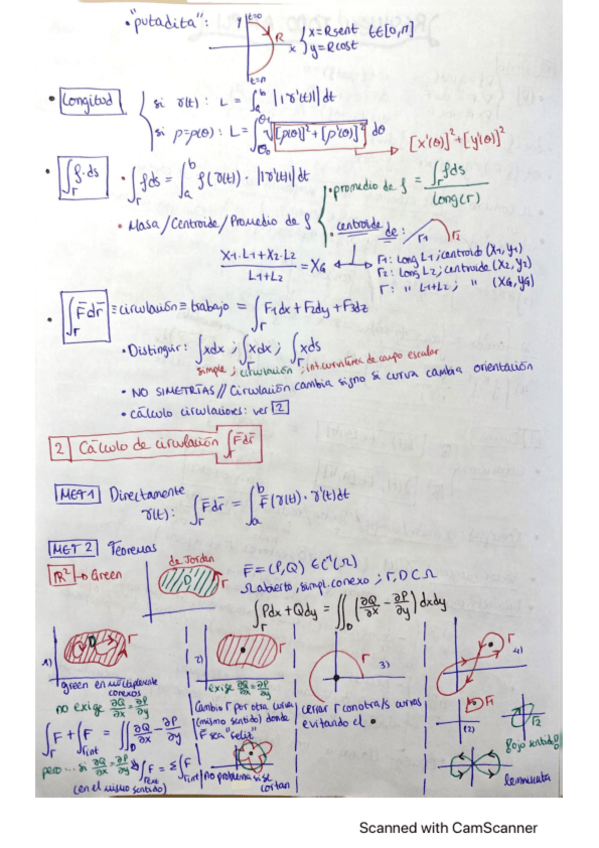 • "putadita":
y t=0
R
x
t=π
{ x=Rsent t∈[0,π]
y=Rcost
• Longitud { si r(t): L = ∫_a^b ||r'(t)|| dt
si ρ=ρ(θ): L = ∫_θ0^θ1 √([ρ(θ)]²+[ρ'(θ)]²) dθ
→ [x'(θ)]²+[y'(θ)]²
• ∫_Γ f·ds • ∫_Γ fds = ∫_a^b f(r(t)) · ||r'(t)|| dt
• Masa/Centroide/Promedio de f
• promedio de f = ∫_Γ fds / long(Γ)
• centroide de: Γ1 Γ2
(X1·L1+X2·L2)/(L1+L2) = XG ↔ Γ1: long L1; centroide (X1,Y1)
Γ2: long L2; centroide (X2,Y2)
Γ: " L1+L2; " (XG,YG)
• ∫_Γ F̄dr̄ ≡ circulación ≡ trabajo = ∫_Γ F1dx+F2dy+F3dz
• Distinguir: ∫xdx ; ∫_Γ xdx ; ∫_Γ xds
simple ; circulación ; int. curvilínea de campo escalar
• NO SIMETRÍAS // Circulación cambia signo si curva cambia orientación
• cálculo circulaciones: ver 2
2 Cálculo de circulación ∫_Γ F̄dr̄
MET 1 Directamente
r(t): ∫_Γ F̄dr̄ = ∫_a^b F̄(r(t)) · r'(t)dt
MET 2 Teoremas
ℝ² → Green
de Jordan
D Γ
F̄=(P,Q) ∈ C¹(Ω)
Ω abierto, simpl. conexo ; Γ, D ⊂ Ω
∫_Γ Pdx+Qdy = ∬_D (∂Q/∂x − ∂P/∂y) dxdy
1) D Γ
green en múltiplemente conexos
no exige ∂Q/∂x = ∂P/∂y
∫_Γ F + ∫_Γint F = ∬_D ∂Q/∂x − ∂P/∂y
pero ... si ∂Q/∂x = ∂P/∂y → ∫_Γext F = Σ ∫_Γint F
(en el mismo sentido)
2) Γ
exige ∂Q/∂x = ∂P/∂y
Cambio Γ por otra curva
(mismo sentido) donde
F̄ sea "feliz"
no problema si se cortan
3) Γ
cerrar Γ con otra/s curvas
evitando el •
4) Γ
Γ1
(2)
Γ2
¡ojo sentido!
lemniscata
Scanned with CamScanner